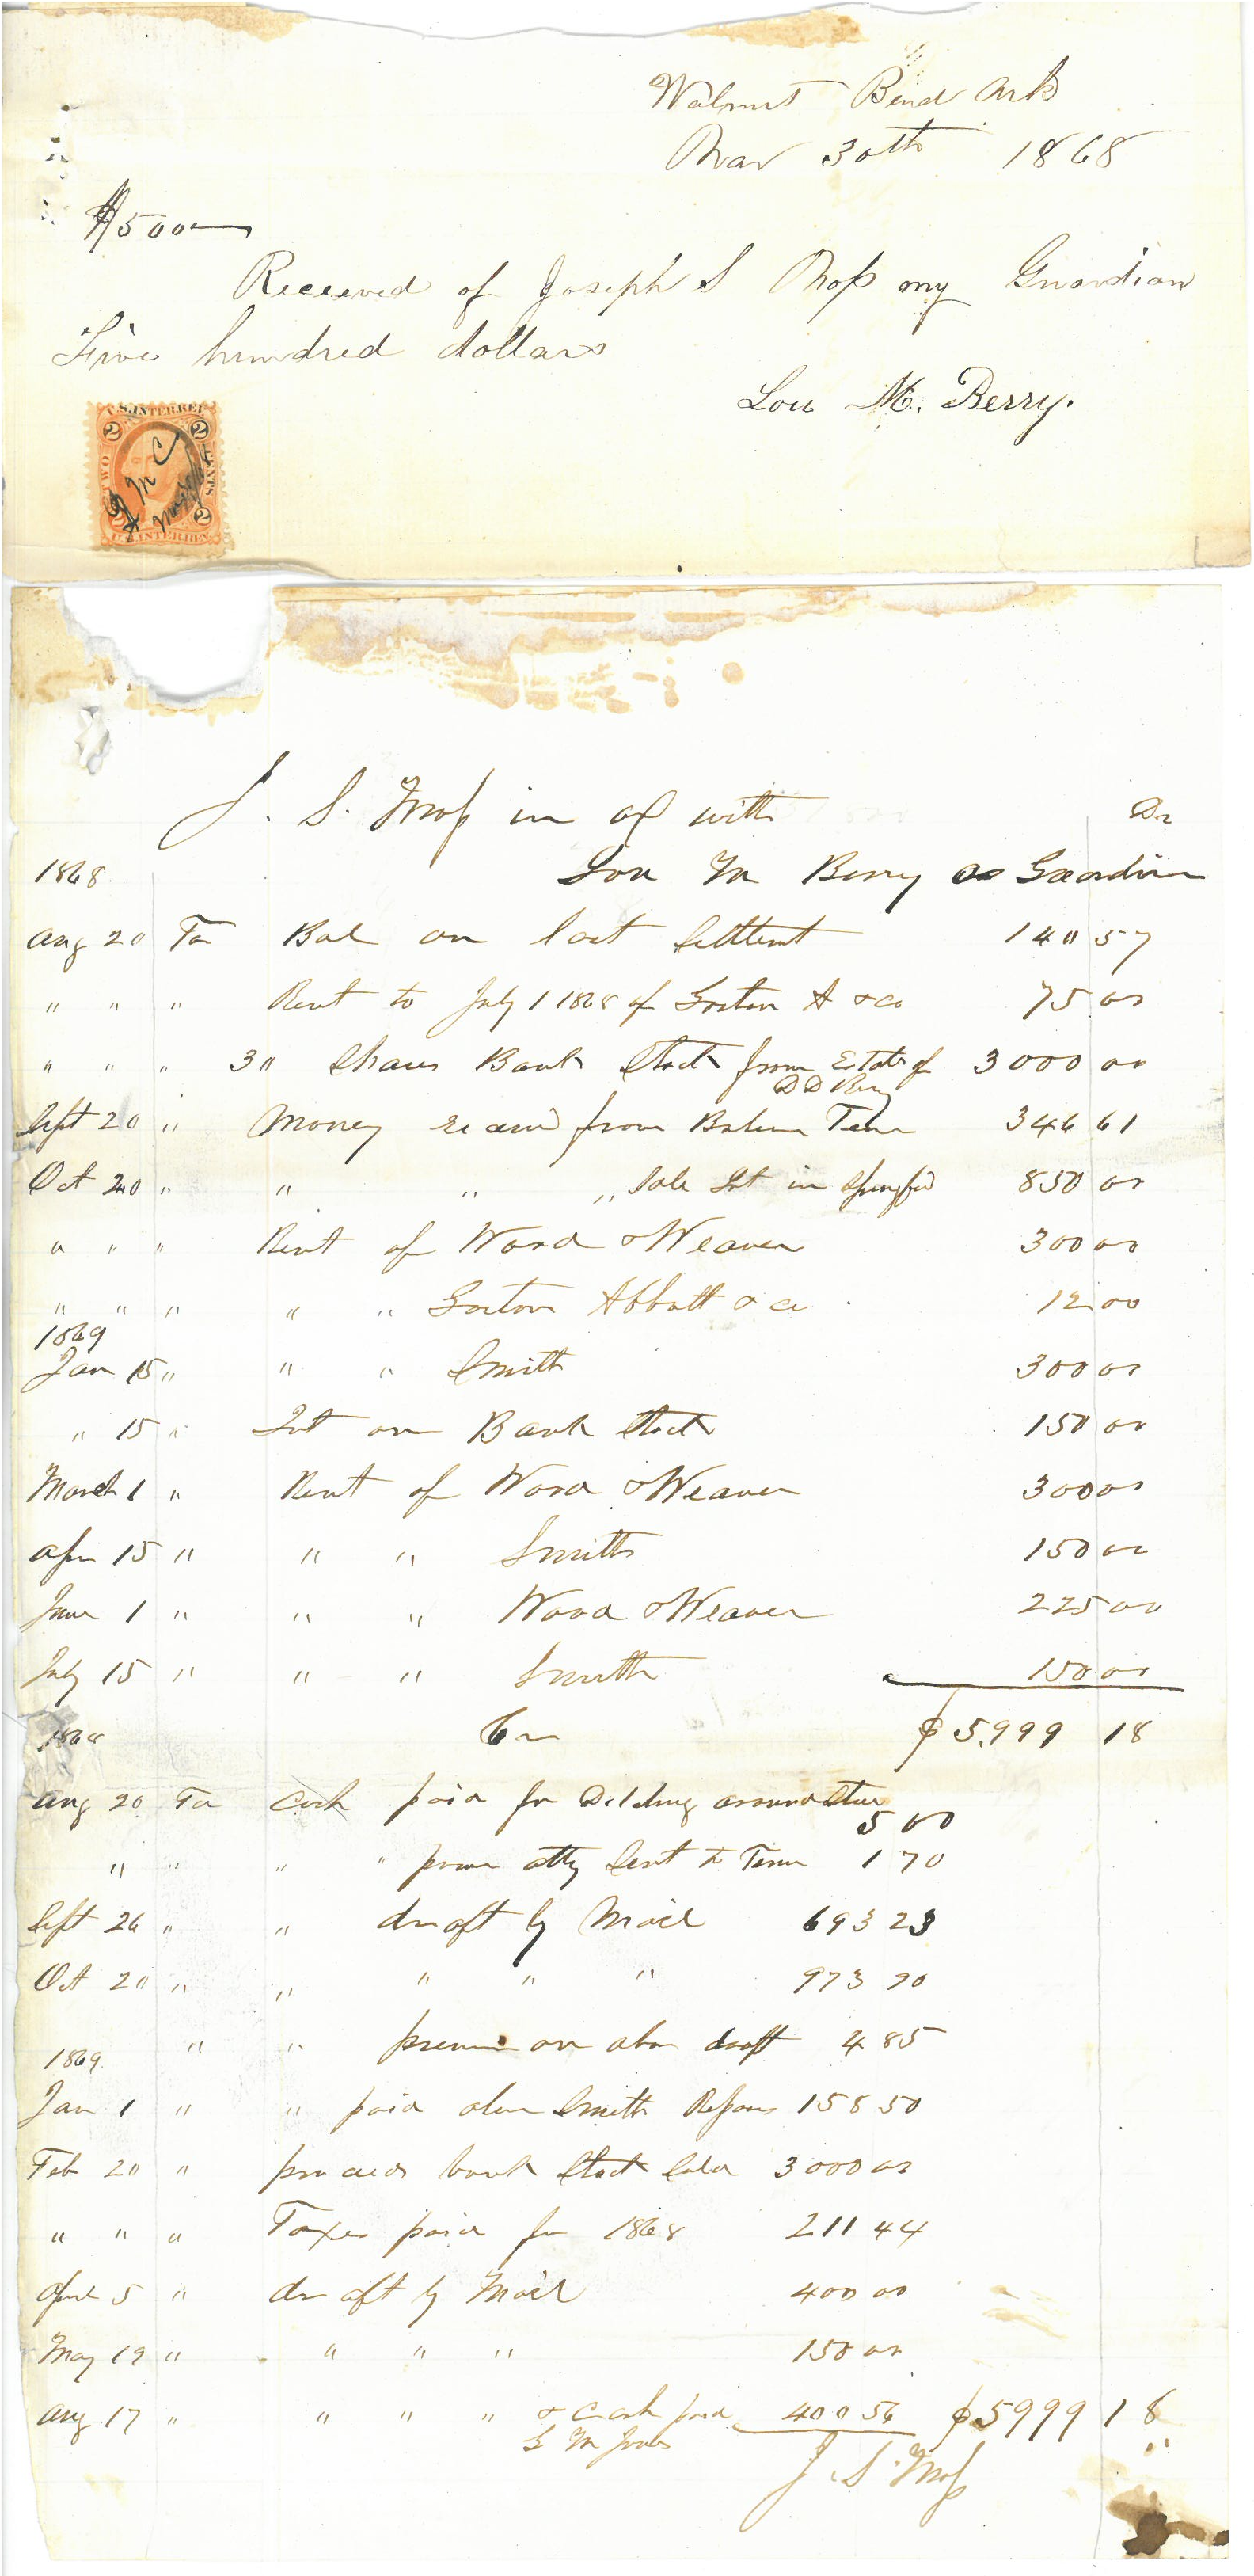 Walnut Bend Arks
Mar 30th 1868
$500—
Received of Joseph S Moss my Guardian
Five hundred dollars
Lou M. Berry.
U.S. INTER. REV.
2 2
TWO CENTS
2 2
U.S. INTER. REV.
J. S. Moss in a/c with Dr
1868 Lou M Berry as Guardian
Aug 20 To Bal on last Settlemt 140 57
" " " Rent to July 1 1868 of Gorton A & co 75 00
" " " 30 Shares Bank Stock from Estate of 3000 00
D D Berry
Sept 20 " Money recevd from Tenn 346 61
Oct 20 " " " " Sale Lot in Springfid 850 00
" " " Rent of Wood & Weaver 300 00
" " " " " Gorton Abbott & co 12 00
1869
Jan 15 " " " Smith 300 00
" 15 " Int on Bank Stock 150 00
March 1 " Rent of Wood & Weaver 300 00
Apr 15 " " " Smith 150 00
June 1 " " " Wood & Weaver 225 00
July 15 " " " Smith 150 00
1868 Cr $5,999 18
Aug 20 To Cash paid for Ditching around Store
5 00
" " " " power atty Sent to Tenn 1 70
Sept 26 " " draft by Mail 693 23
Oct 20 " " " " " 973 90
" " premium on abov draft 4 85
1869
Jan 1 " " paid Smith Repairs 158 50
Feb 20 " proceeds bank Stock Sold 3000 00
" " " Taxes paid for 1868 211 44
April 5 " draft by Mail 400 00
May 19 " " " " 150 00
Aug 17 " " " " & Cash paid 400 56 $5999 18
G M Jones
J. S. Moss